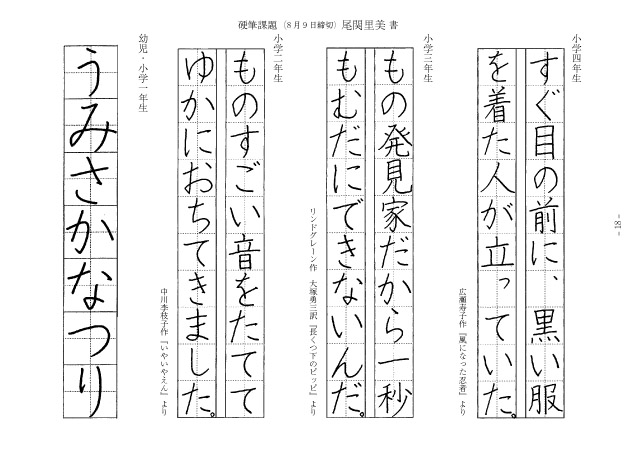 硬筆課題（8月9日締切）尾関里美 書
小学四年生
すぐ目の前に、黒い服
を着た人が立っていた。
広瀬寿子作『風になった忍者』より
小学三年生
もの発見家だから一秒
もむだにできないんだ。
リンドグレーン作 大塚勇三訳『長くつ下のピッピ』より
小学二年生
ものすごい音をたてて
ゆかにおちてきました。
中川李枝子作『いやいやえん』より
幼児・小学一年生
うみさかなつり
- 18 -